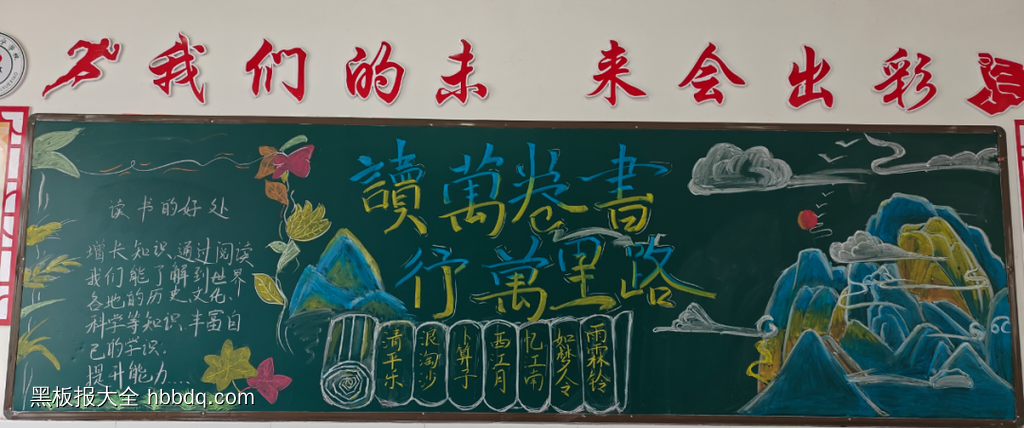 我们的未来会出彩
讀萬卷書
行萬里路
读书的好处
增长知识,通过阅读
我们能了解到世界
各地的历史、文化、
科学等知识,丰富自
己的学识.
提升能力....
清平乐
浪淘沙
卜算子
西江月
忆江南
如梦令
雨霖铃
黑板报大全 hbbdq.com